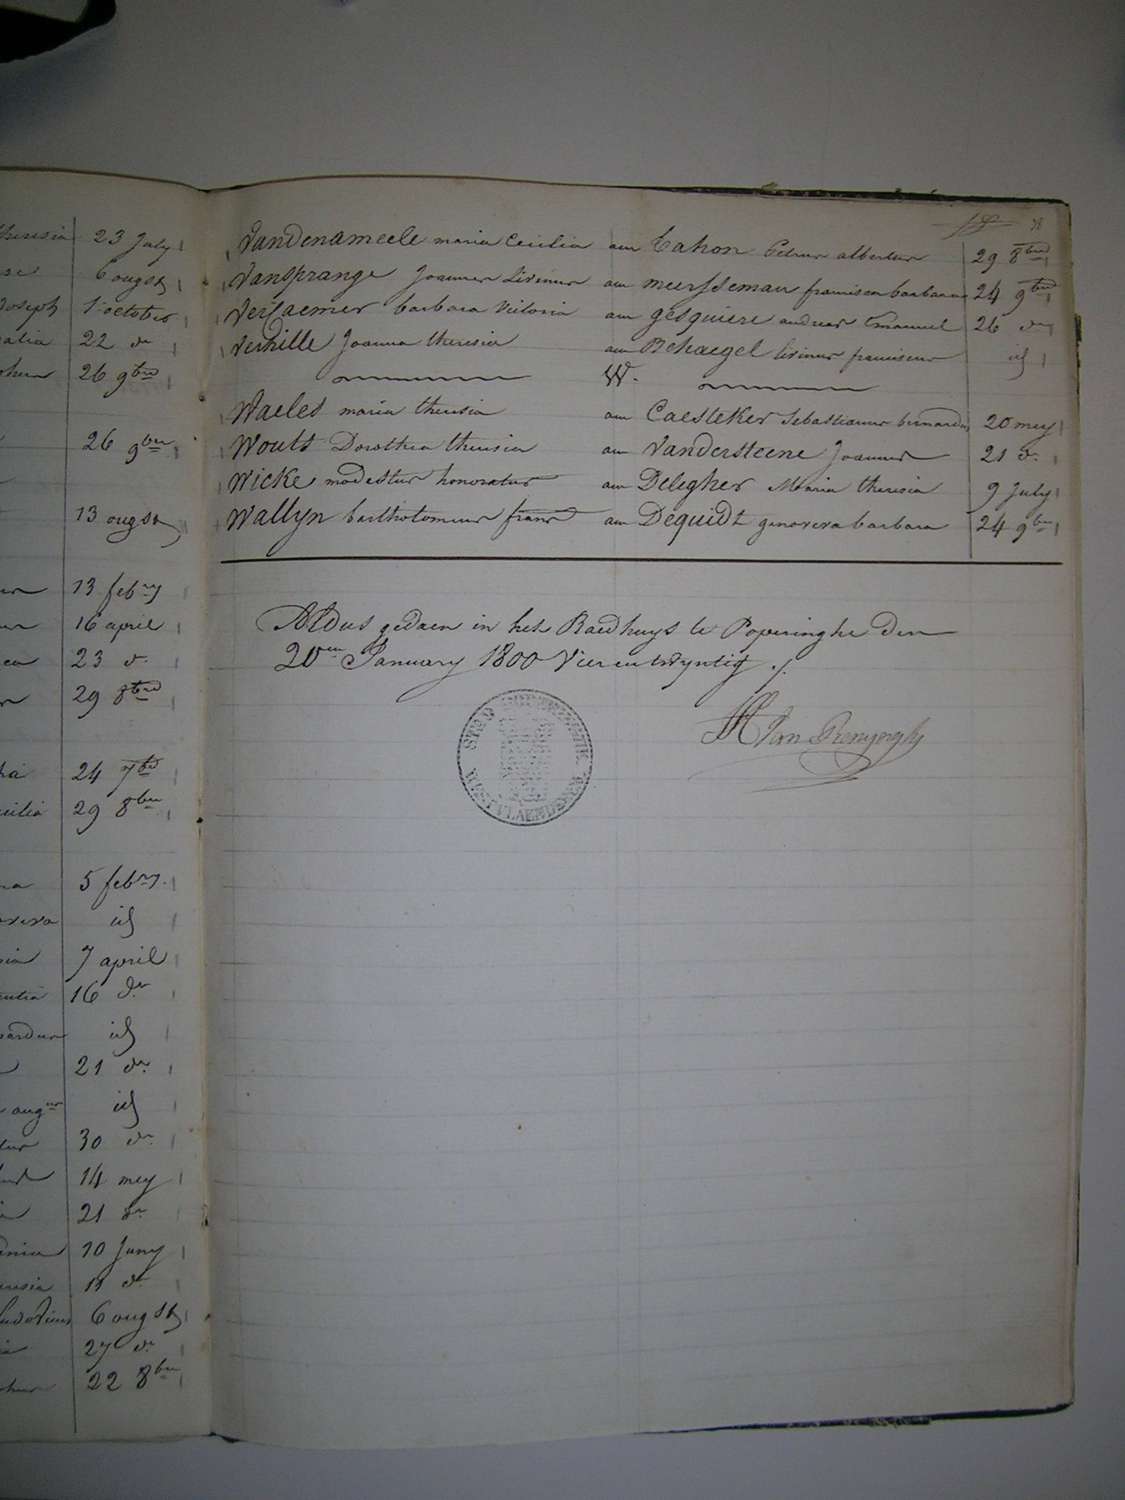 theresia 23 July
6 ougst
Joseph 1 october
22 dr
26 9bre
26 9bre
13 ougst
13 febry
16 april
23 d.
29 8bre
24 7bre
29 8bre
5 febry.
id
7 april
16 dr
id
21 dr
id
30 dr
14 mey
21 dr
10 Juny
11 dr
6 ougst
27 dr
22 8bre
Vandenameele maria Cecilia aan Tahon Petrus albertus 29 8bre
Vansprange Joannes Livinus aan meersseman francisca barbara 24 9bre
Verlaemer barbara Victoria aan gesquiere andreas Emanuel 26 dr
Verhille Joanna theresia aan Behaegel livinus franciscus id
W.
Waeles maria theresia aan Caesteker Sebastianus bernardus 20 mey
Wouts Dorothea theresia aan Vandersteene Joannes 21 d.
Wicke modestus honoratus aan Delegher Maria theresia 9 July
Wallyn bartholomeus frans aan Dequidt genoveva barbara 24 9bre
Aldus gedaen in het Raedhuys te Poperinghe den
20en January 1800 Vierentwyntig ./.
STAD POPERINGHE
WEST VLAENDEREN